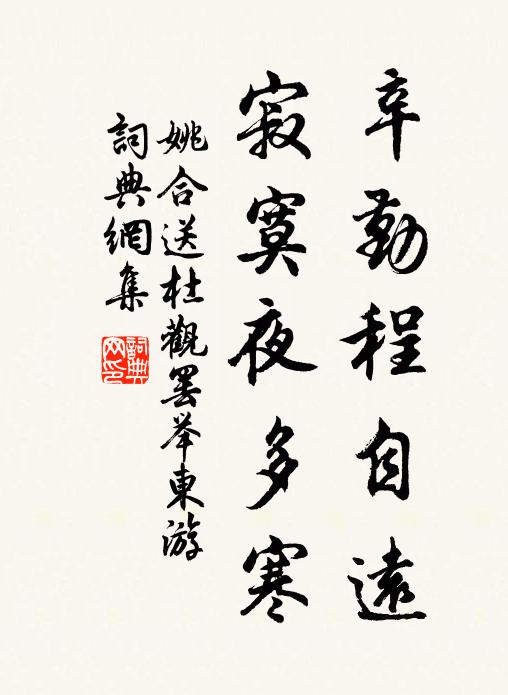 辛勤程自遠
寂寞夜多寒
姚合送杜觀罷举東游
詞典網集
詞典网印